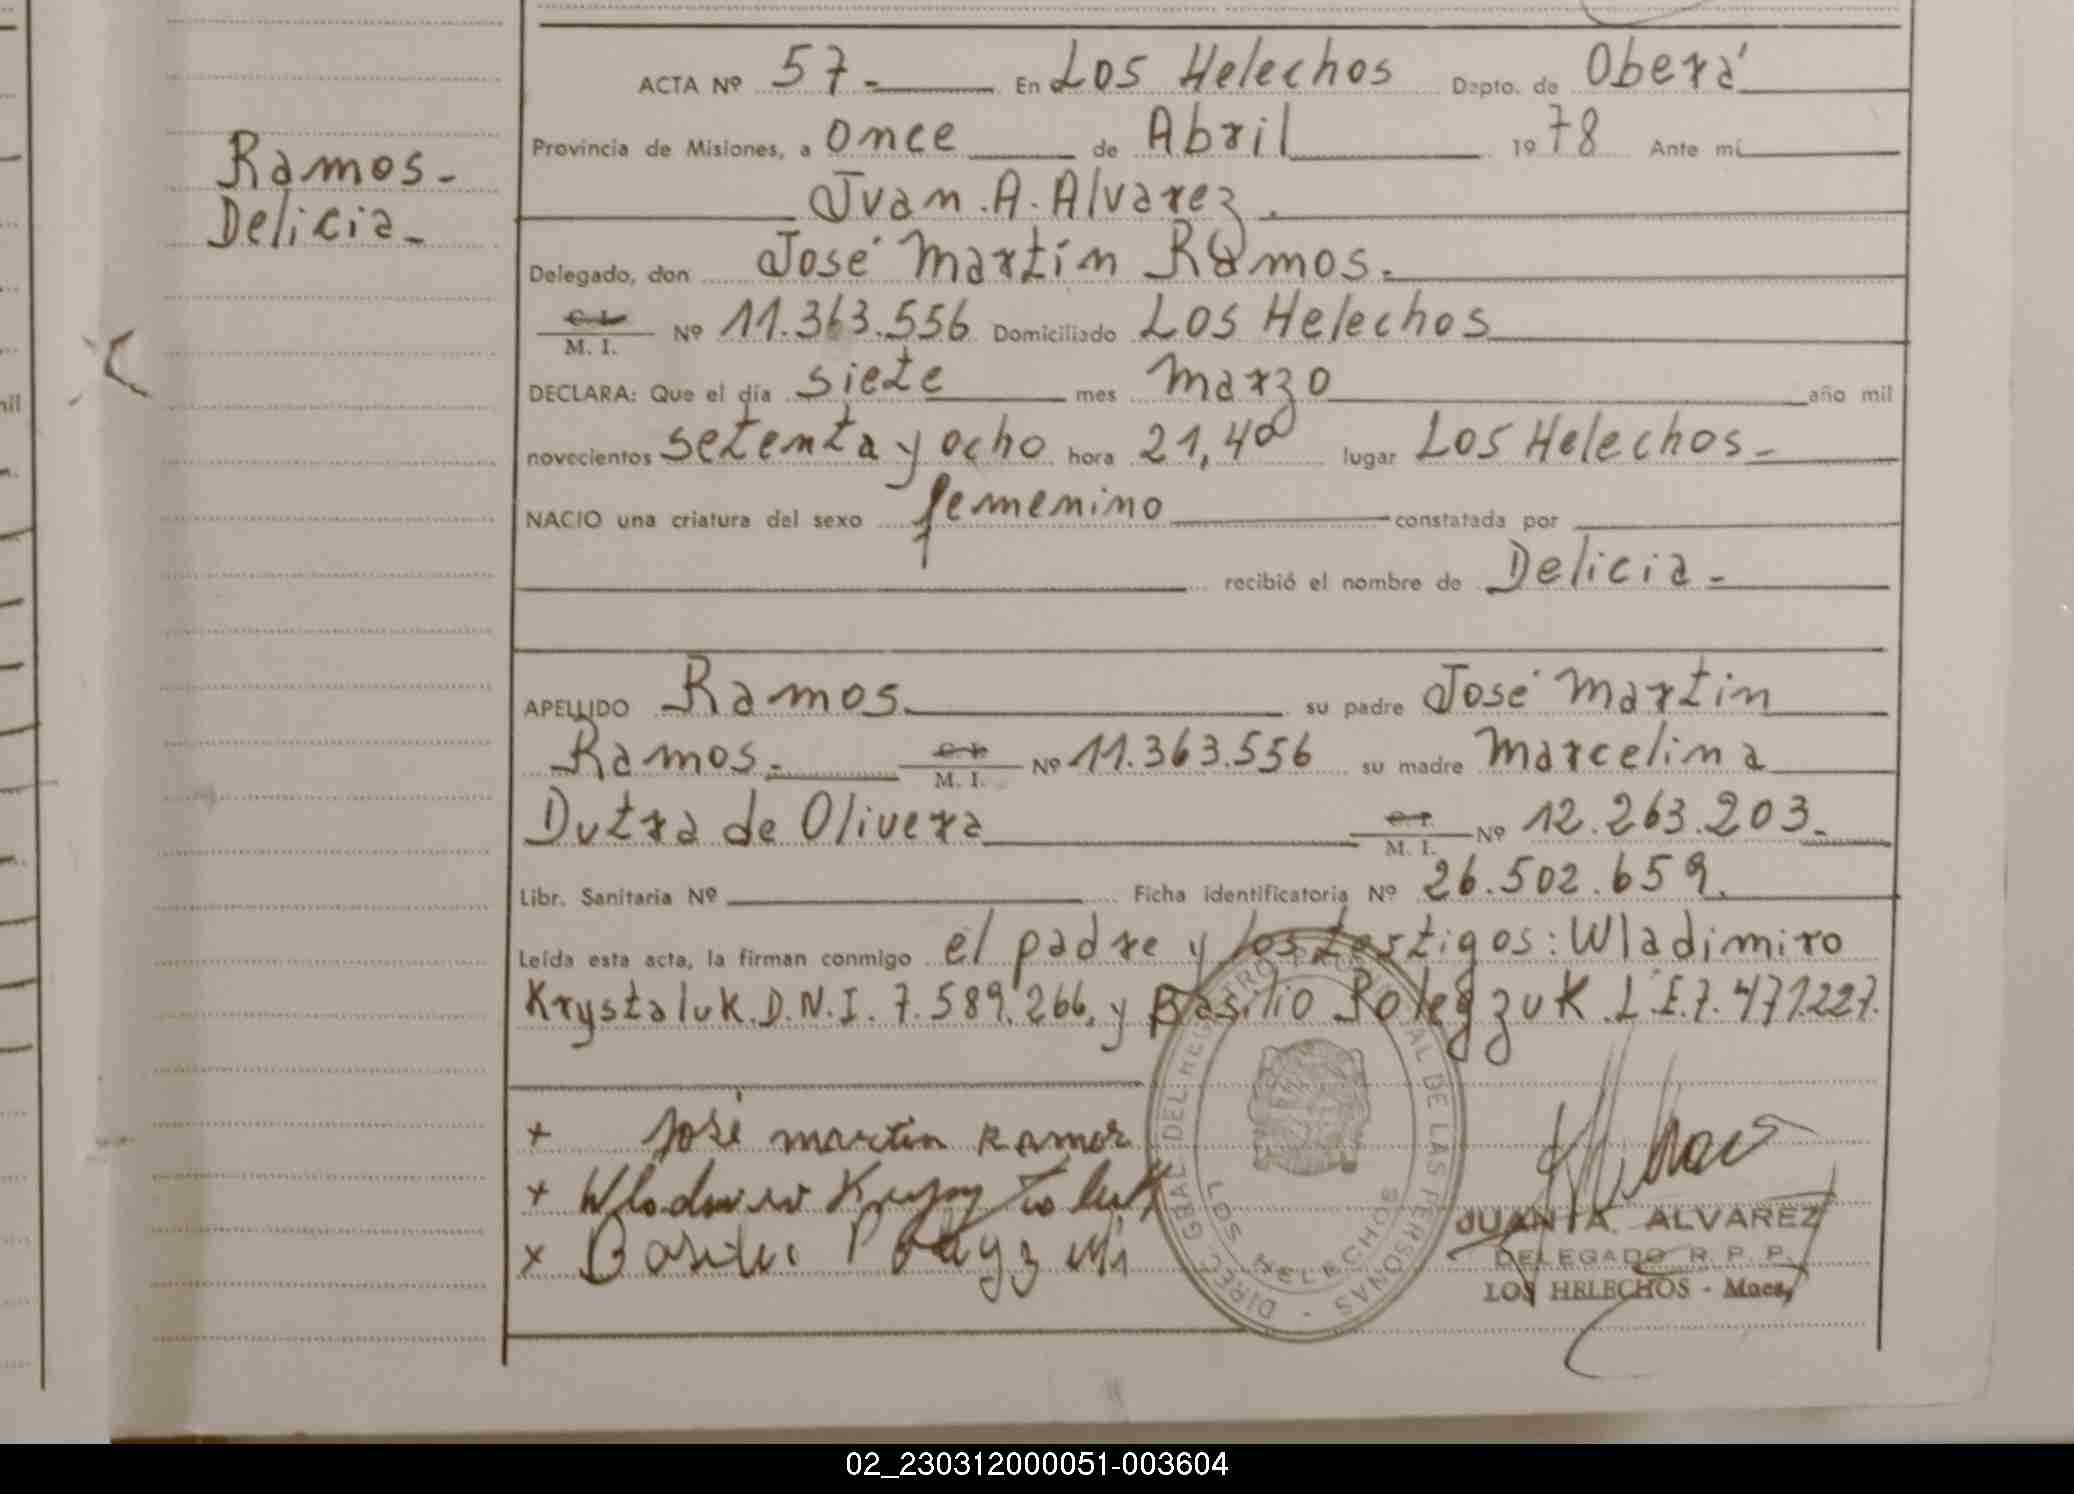 Ramos.-
Delicia.-
ACTA Nº 57.- En Los Helechos Dapto. de Oberá
Provincia de Misiones, a once de Abril 1978 Ante mí
Juan.A.Alvarez.
Delegado, don José Martín Ramos.-
C. I.
M. I. Nº 11.363.556 Domiciliado Los Helechos
DECLARA: Que el día siete mes marzo año mil
novecientos setenta y ocho hora 21,40 lugar Los Helechos.-
NACIO una criatura del sexo femenino constatada por
recibió el nombre de Delicia.-
APELLIDO Ramos su padre José Martín
Ramos.- C. I. M. I. Nº 11.363.556 su madre Marcelina
Dutra de Olivera C. I. M. I. Nº 12.263.203.-
Libr. Sanitaria Nº Ficha identificatoria Nº 26.502.659.
Leída esta acta, la firman conmigo el padre y los testigos: Wladimiro
Krystaluk.D.N.I. 7.589.266, y Basilio Polegzuk.L.E.7.471.227.
+ José martin Ramos
+
x
DIREC. GRAL DEL REGISTRO PROVINCIAL DE LAS PERSONAS -
LOS HELECHOS
JUAN A. ALVAREZ
DELEGADO R. P. P.
LOS HELECHOS - Mnes,
02_230312000051-003604